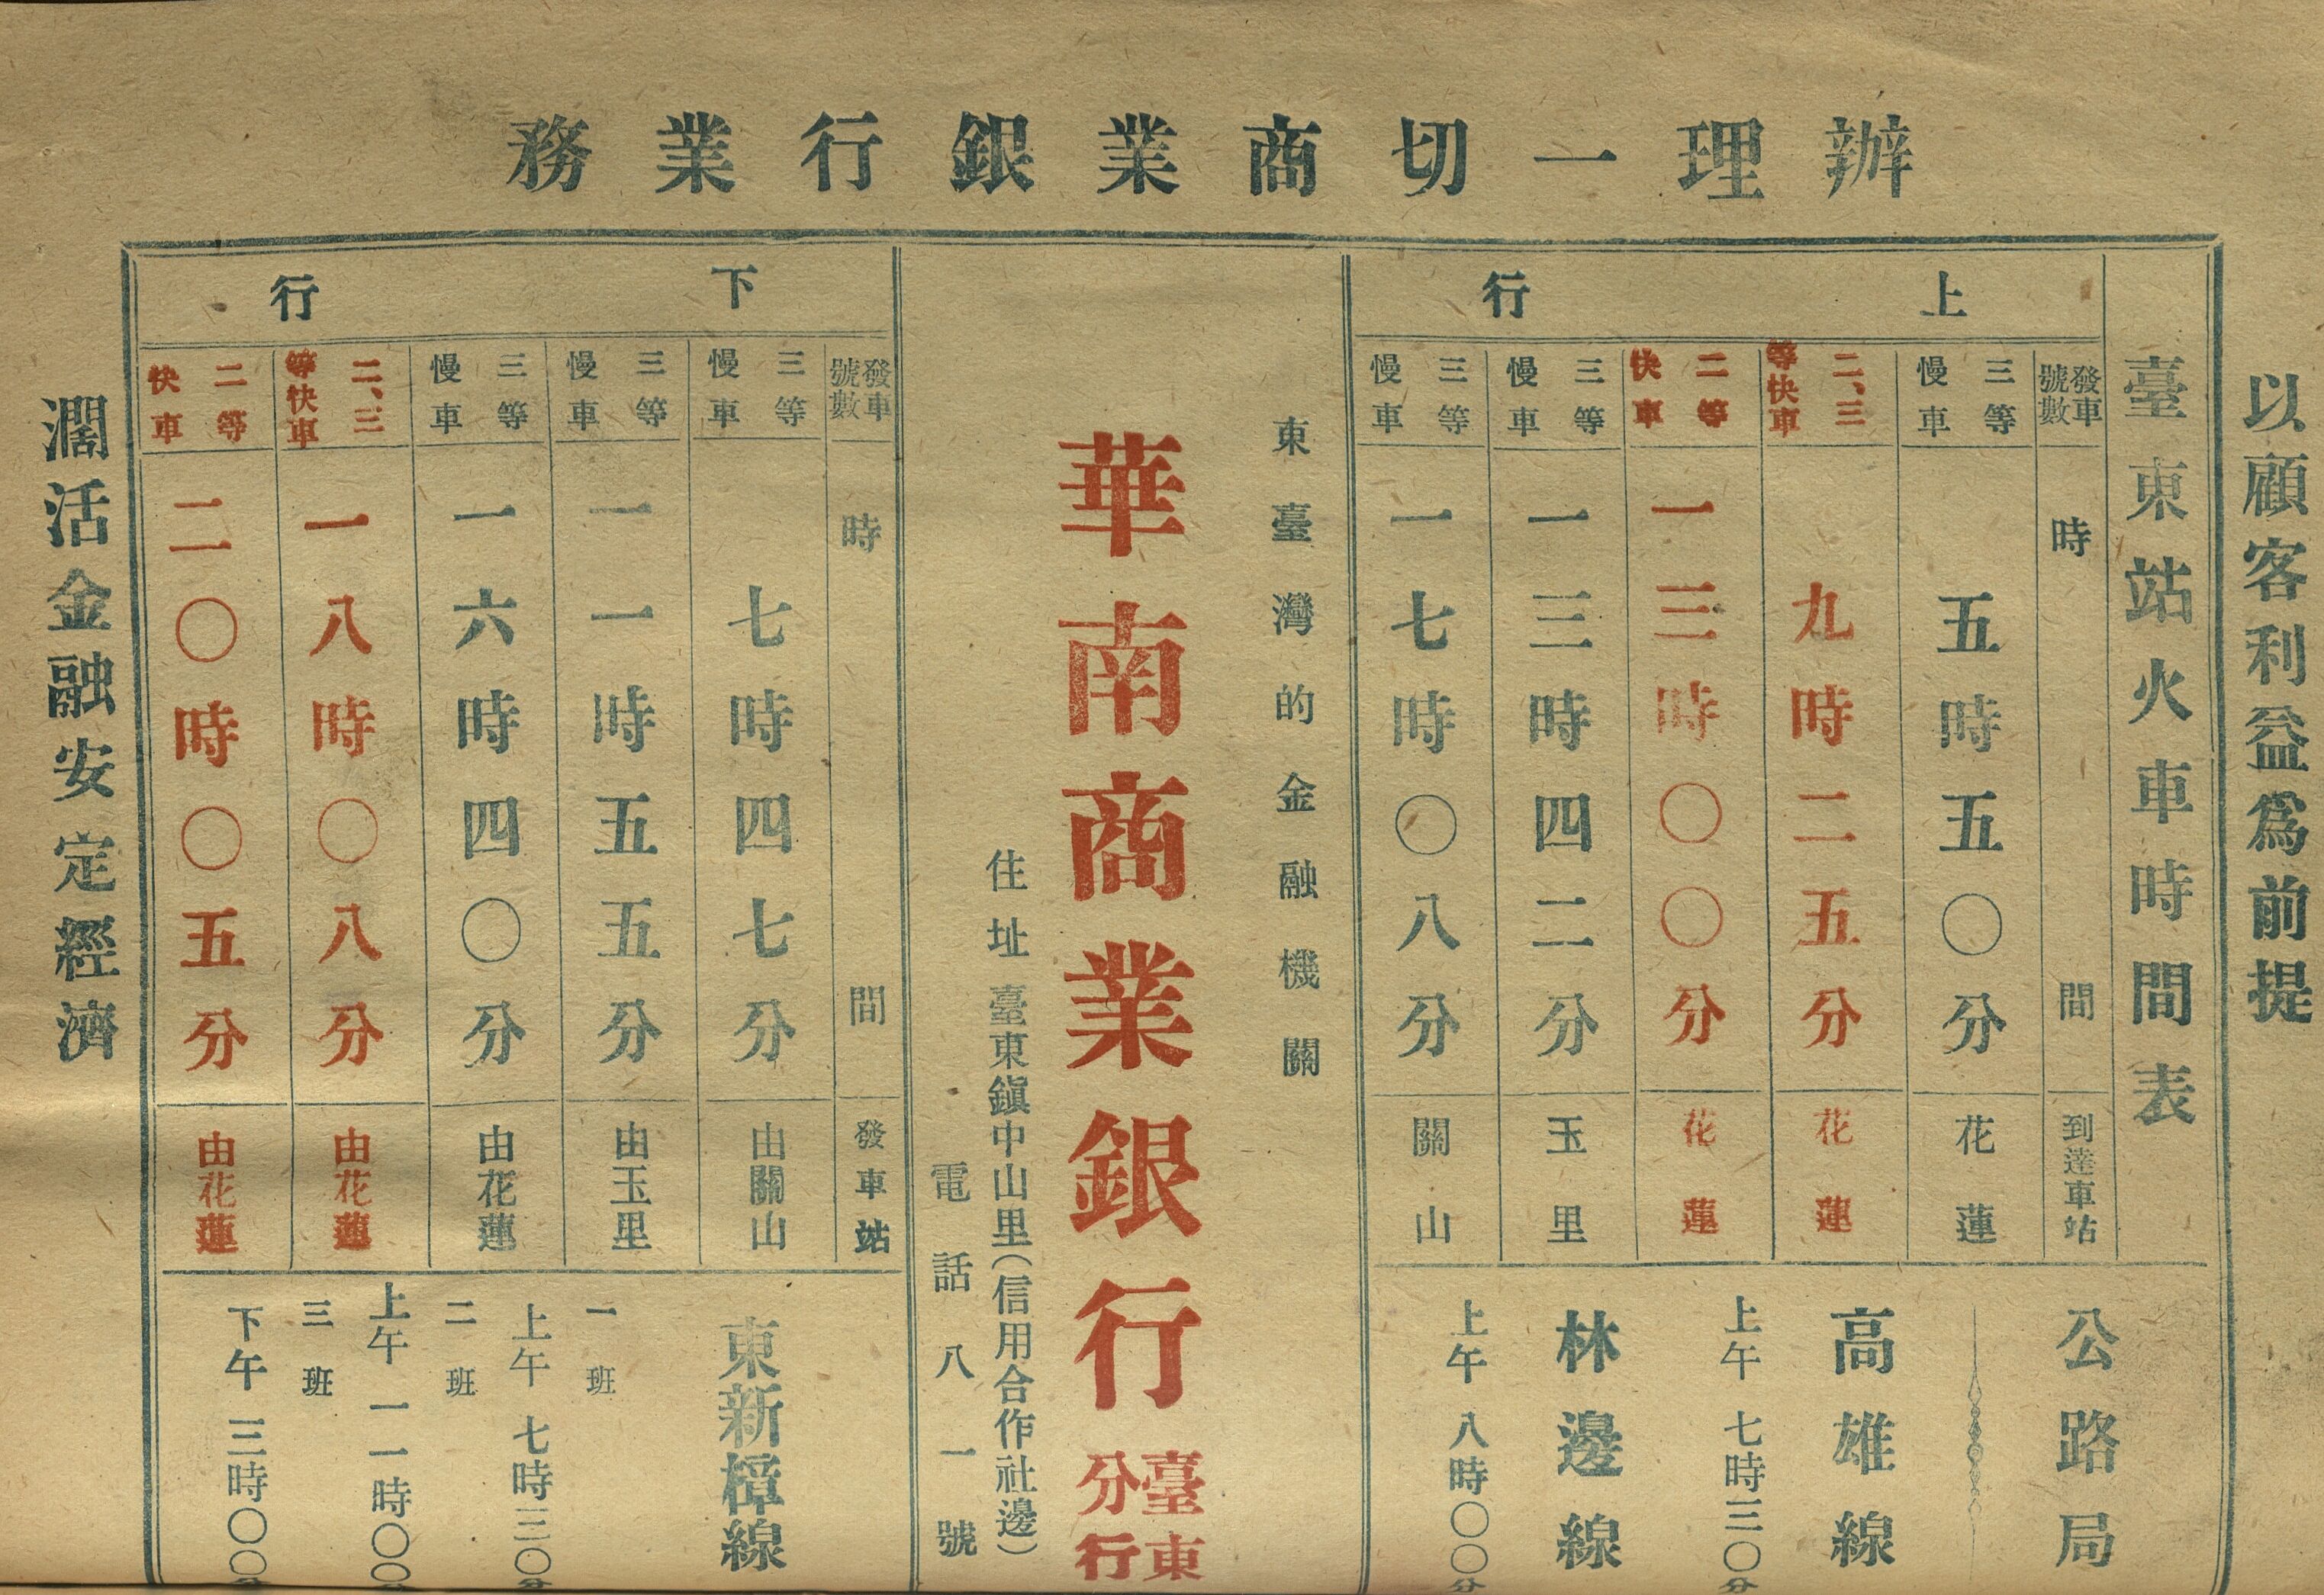 辦理一切商業銀行業務
以顧客利益爲前提
臺東站火車時間表
上行
發車號數
時間
到達車站
三等慢車
五時五〇分
花蓮
二、三等快車
九時二五分
花蓮
二等快車
一三時〇〇分
花蓮
三等慢車
一三時四二分
玉里
三等慢車
一七時〇八分
關山
公路局
高雄線
上午七時三〇分
林邊線
上午八時〇〇分
東臺灣的金融機關
華南商業銀行臺東分行
住址臺東鎭中山里(信用合作社邊)
電話八一號
下行
發車號數
時間
發車站
三等慢車
七時四七分
由關山
三等慢車
一一時五五分
由玉里
三等慢車
一六時四〇分
由花蓮
二、三等快車
一八時〇八分
由花蓮
二等快車
二〇時〇五分
由花蓮
東新樟線
一班
上午七時三〇分
二班
上午一一時〇〇分
三班
下午三時〇〇分
濶活金融安定經濟